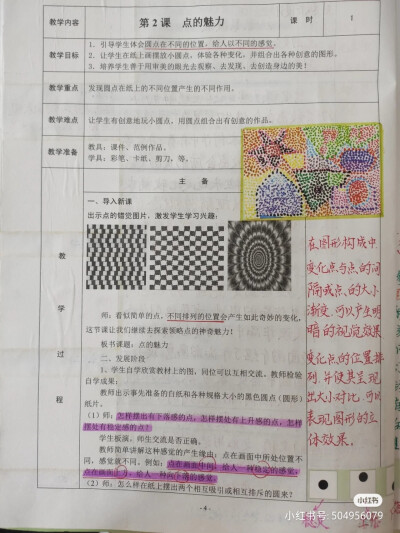 教学内容
第 2 课　点的魅力
课　时
1
教学目标
1. 引导学生体会圆点在不同的位置，给人以不同的感觉。
2. 让学生在纸上画排放小圆点，体验各种变化，并组合出各种创意的图形。
3. 培养学生善于用审美的眼光去观察、去发现、去创造身边的美！
教学重点
发现圆点在纸上的不同位置产生的不同作用。
教学难点
让学生有创意地玩小圆点，用圆点组合出有创意的作品。
教学准备
教具：课件、范例作品。
学具：彩笔、卡纸、剪刀，等。
教学过程
主　备
一、导入新课
出示点的错觉图片，激发学生学习兴趣：
师：看似简单的点，不同排列的位置会产生如此奇妙的变化，
这节课让我们继续去探索领略点的神奇魅力！
板书课题：点的魅力
二、发展阶段
1. 学生自学欣赏教材上的图，同位可以互相交流。教师检验
自学成果：
教师出示事先准备的白纸和各种规格大小的黑色圆点（圆形）
纸片。
（1）师：怎样摆出有下落感的点，怎样摆处有上升感的点，怎样
摆处有稳定感的点？
学生板演。师生交流是否正确。
教师简单讲解这种感觉的产生缘由：点在画面中所处位置不
同，感觉就不同。例如：点在画面中间，给人一种稳定的感觉；
点在画面上方，给人一种向下落的感觉。
（2）师：怎么样在纸上摆出两个相互吸引或相互排斥的圆来？
在图形构成中
变化点与点的间
隔或点的大小
渐变，可以产生明
暗的视觉效果
变化点的位置排
列，并使其呈现
出大小对比，可以
表现图形的立
体效果。
- 4 -
小红书
小红书号: 504956079